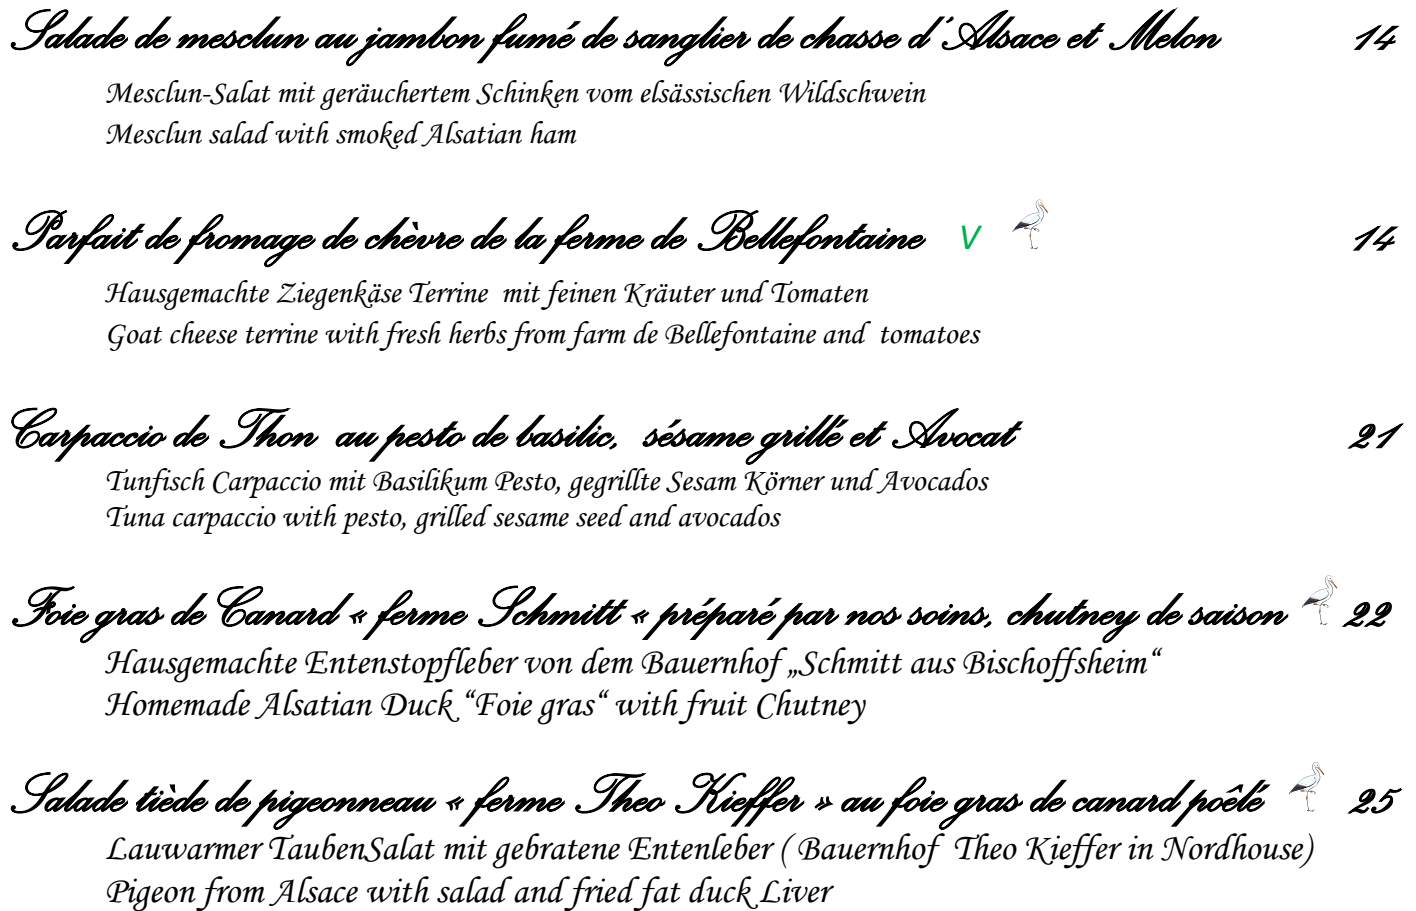 Salade de mesclun au jambon fumé de sanglier de chasse d'Alsace et Melon 14
Mesclun-Salat mit geräuchertem Schinken vom elsässischen Wildschwein
Mesclun salad with smoked Alsatian ham
Parfait de fromage de chèvre de la ferme de Bellefontaine V 14
Hausgemachte Ziegenkäse Terrine mit feinen Kräuter und Tomaten
Goat cheese terrine with fresh herbs from farm de Bellefontaine and tomatoes
Carpaccio de Thon au pesto de basilic, sésame grillé et Avocat 21
Tunfisch Carpaccio mit Basilikum Pesto, gegrillte Sesam Körner und Avocados
Tuna carpaccio with pesto, grilled sesame seed and avocados
Foie gras de Canard « ferme Schmitt « préparé par nos soins, chutney de saison 22
Hausgemachte Entenstopfleber von dem Bauernhof „Schmitt aus Bischoffsheim“
Homemade Alsatian Duck “Foie gras“ with fruit Chutney
Salade tiède de pigeonneau « ferme Theo Kieffer » au foie gras de canard poêlé 25
Lauwarmer TaubenSalat mit gebratene Entenleber ( Bauernhof Theo Kieffer in Nordhouse)
Pigeon from Alsace with salad and fried fat duck Liver